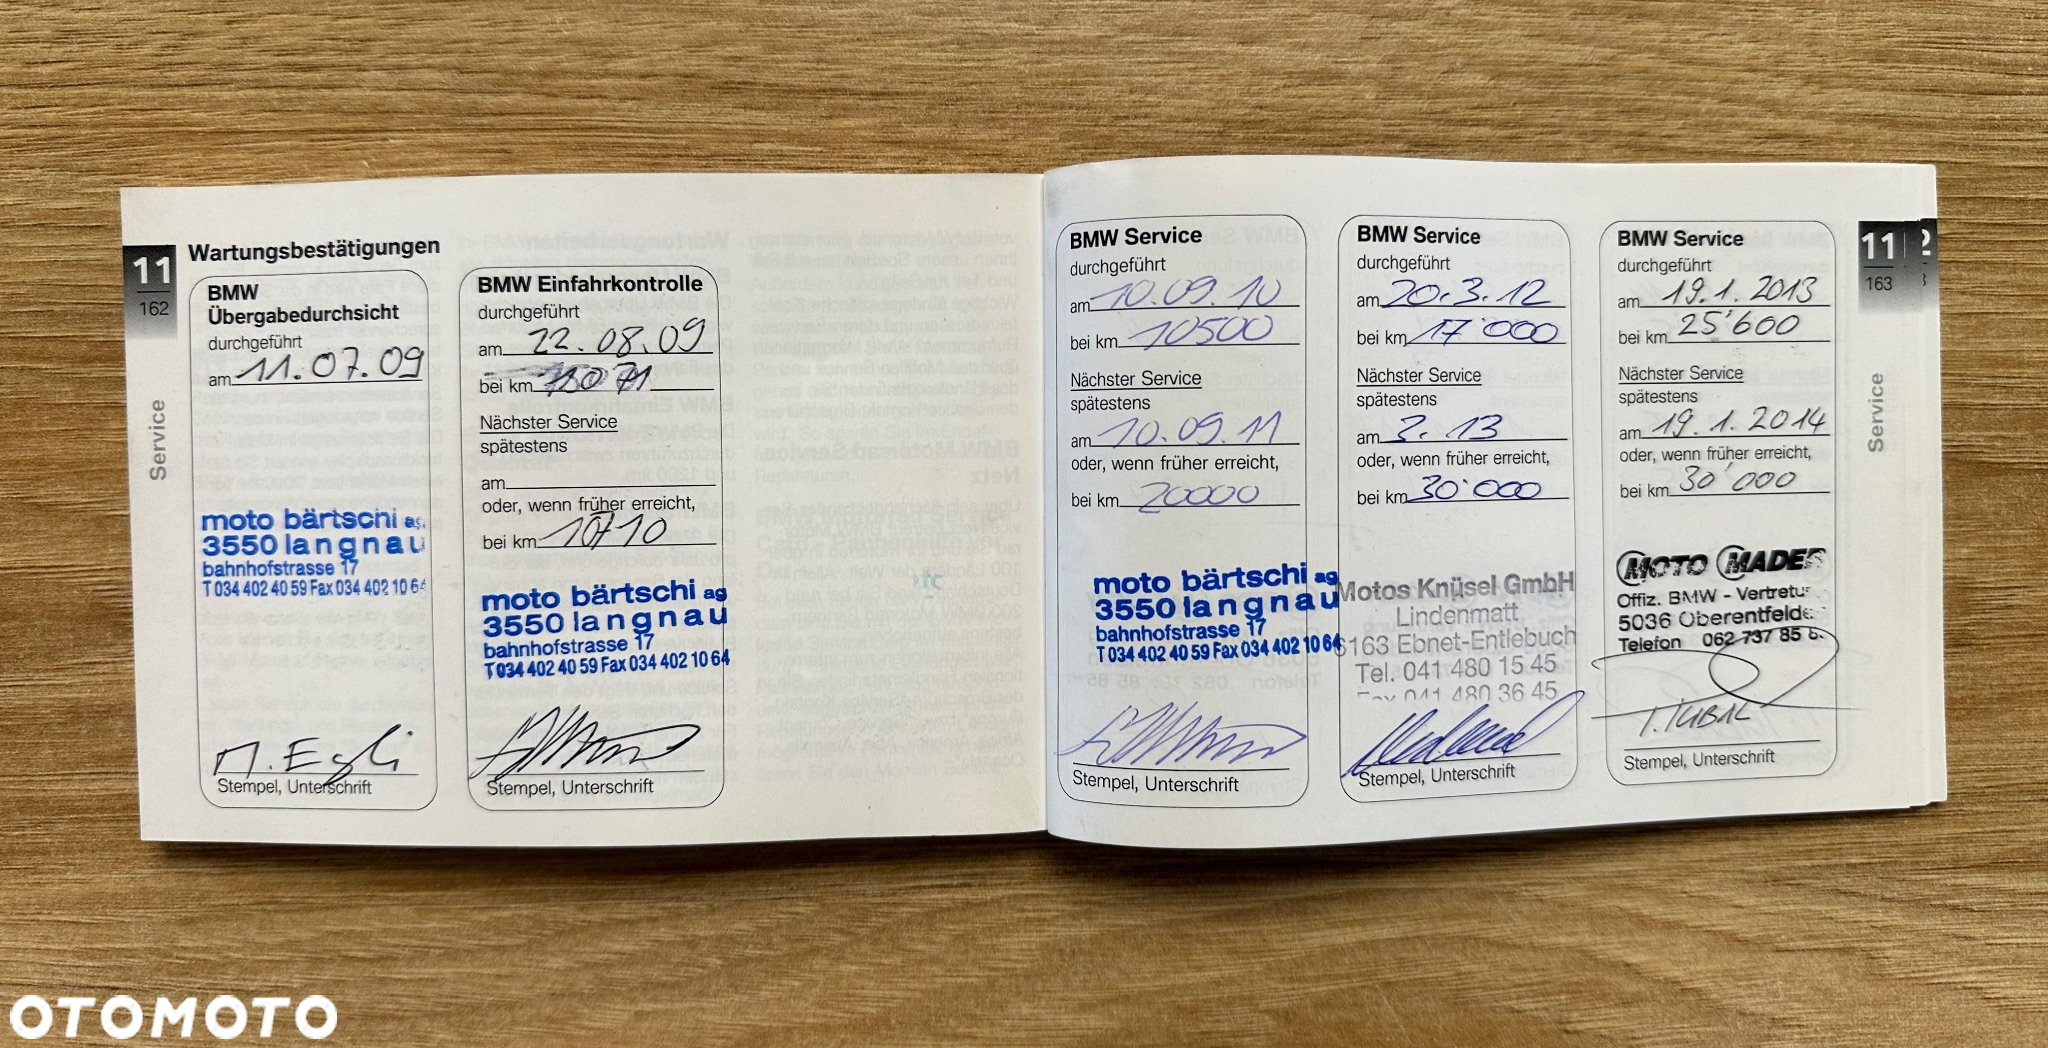 11
162
Service
Wartungsbestätigungen
BMW
Übergabedurchsicht
durchgeführt
am 11.07.09
moto bärtschi ag
3550 langnau
bahnhofstrasse 17
T 034 402 40 59 Fax 034 402 10 64
M. Egli
Stempel, Unterschrift
BMW Einfahrkontrolle
durchgeführt
am 22.08.09
bei km
Nächster Service
spätestens
am
oder, wenn früher erreicht,
bei km
moto bärtschi ag
3550 langnau
bahnhofstrasse 17
T 034 402 40 59 Fax 034 402 10 64
Stempel, Unterschrift
BMW Service
durchgeführt
am 10.09.10
bei km 10500
Nächster Service
spätestens
am 10.09.11
oder, wenn früher erreicht,
bei km 20000
moto bärtschi ag
3550 langnau
bahnhofstrasse 17
T 034 402 40 59 Fax 034 402 10 64
Stempel, Unterschrift
BMW Service
durchgeführt
am 20.3.12
bei km 17'000
Nächster Service
spätestens
am 3.13
oder, wenn früher erreicht,
bei km 30'000
Motos Knüsel GmbH
Lindenmatt
6163 Ebnet-Entlebuch
Tel. 041 480 15 45
Fax 041 480 36 45
Stempel, Unterschrift
BMW Service
durchgeführt
am 19.1.2013
bei km 25'600
Nächster Service
spätestens
am 19.1.2014
oder, wenn früher erreicht,
bei km 30'000
MOTO MADER
Offiz. BMW - Vertretu
5036 Oberentfelde
Telefon 062 737 85 8
Stempel, Unterschrift
11
163
Service
OTOMOTO